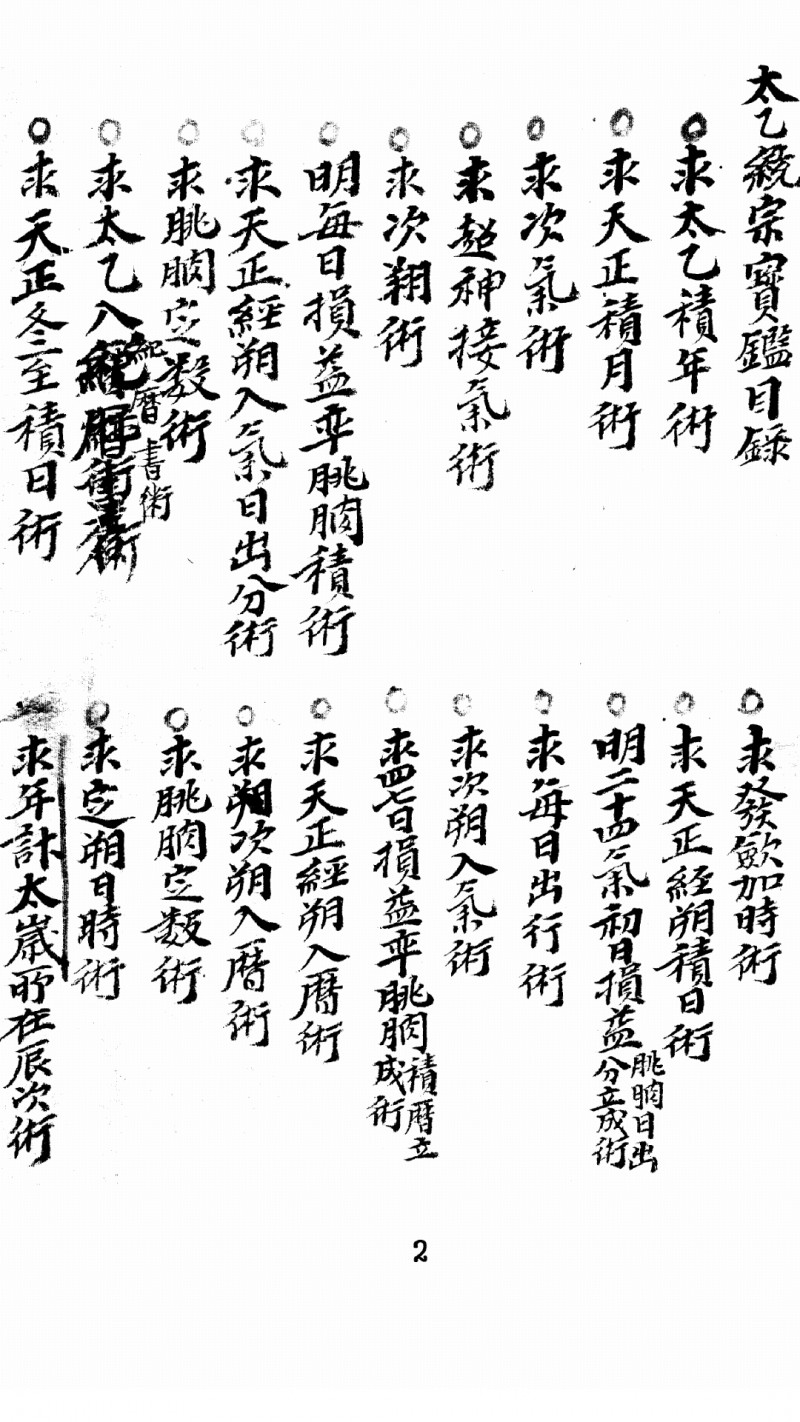 太乙統宗寶鑑目錄
求太乙積年術
求天正積月術
求次氣術
求超神接氣術
求次朔術
明每日損益率朓朒積術
求天正經朔入氣日出分術
求朓朒定数術
求太乙入紀暦書術
求天正冬至積日術
求發斂加時術
求天正經朔積日術
明二十四氣初日損益朓朒日出分立成術
求每日出行術
求次朔入氣術
求四七日損益率朓朒積暦立成術
求天正經朔入暦術
求朔次朔入暦術
求朓朒定数術
求定朔日時術
求年計太歲所在辰次術
2